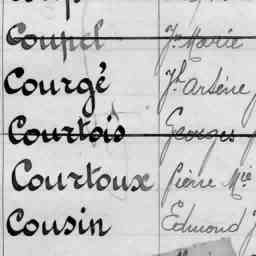 Coupel Jn Marie
Courgé Jh Arsène
Courtois Georges
Courtoux Pierre Mie
Cousin Edmond J